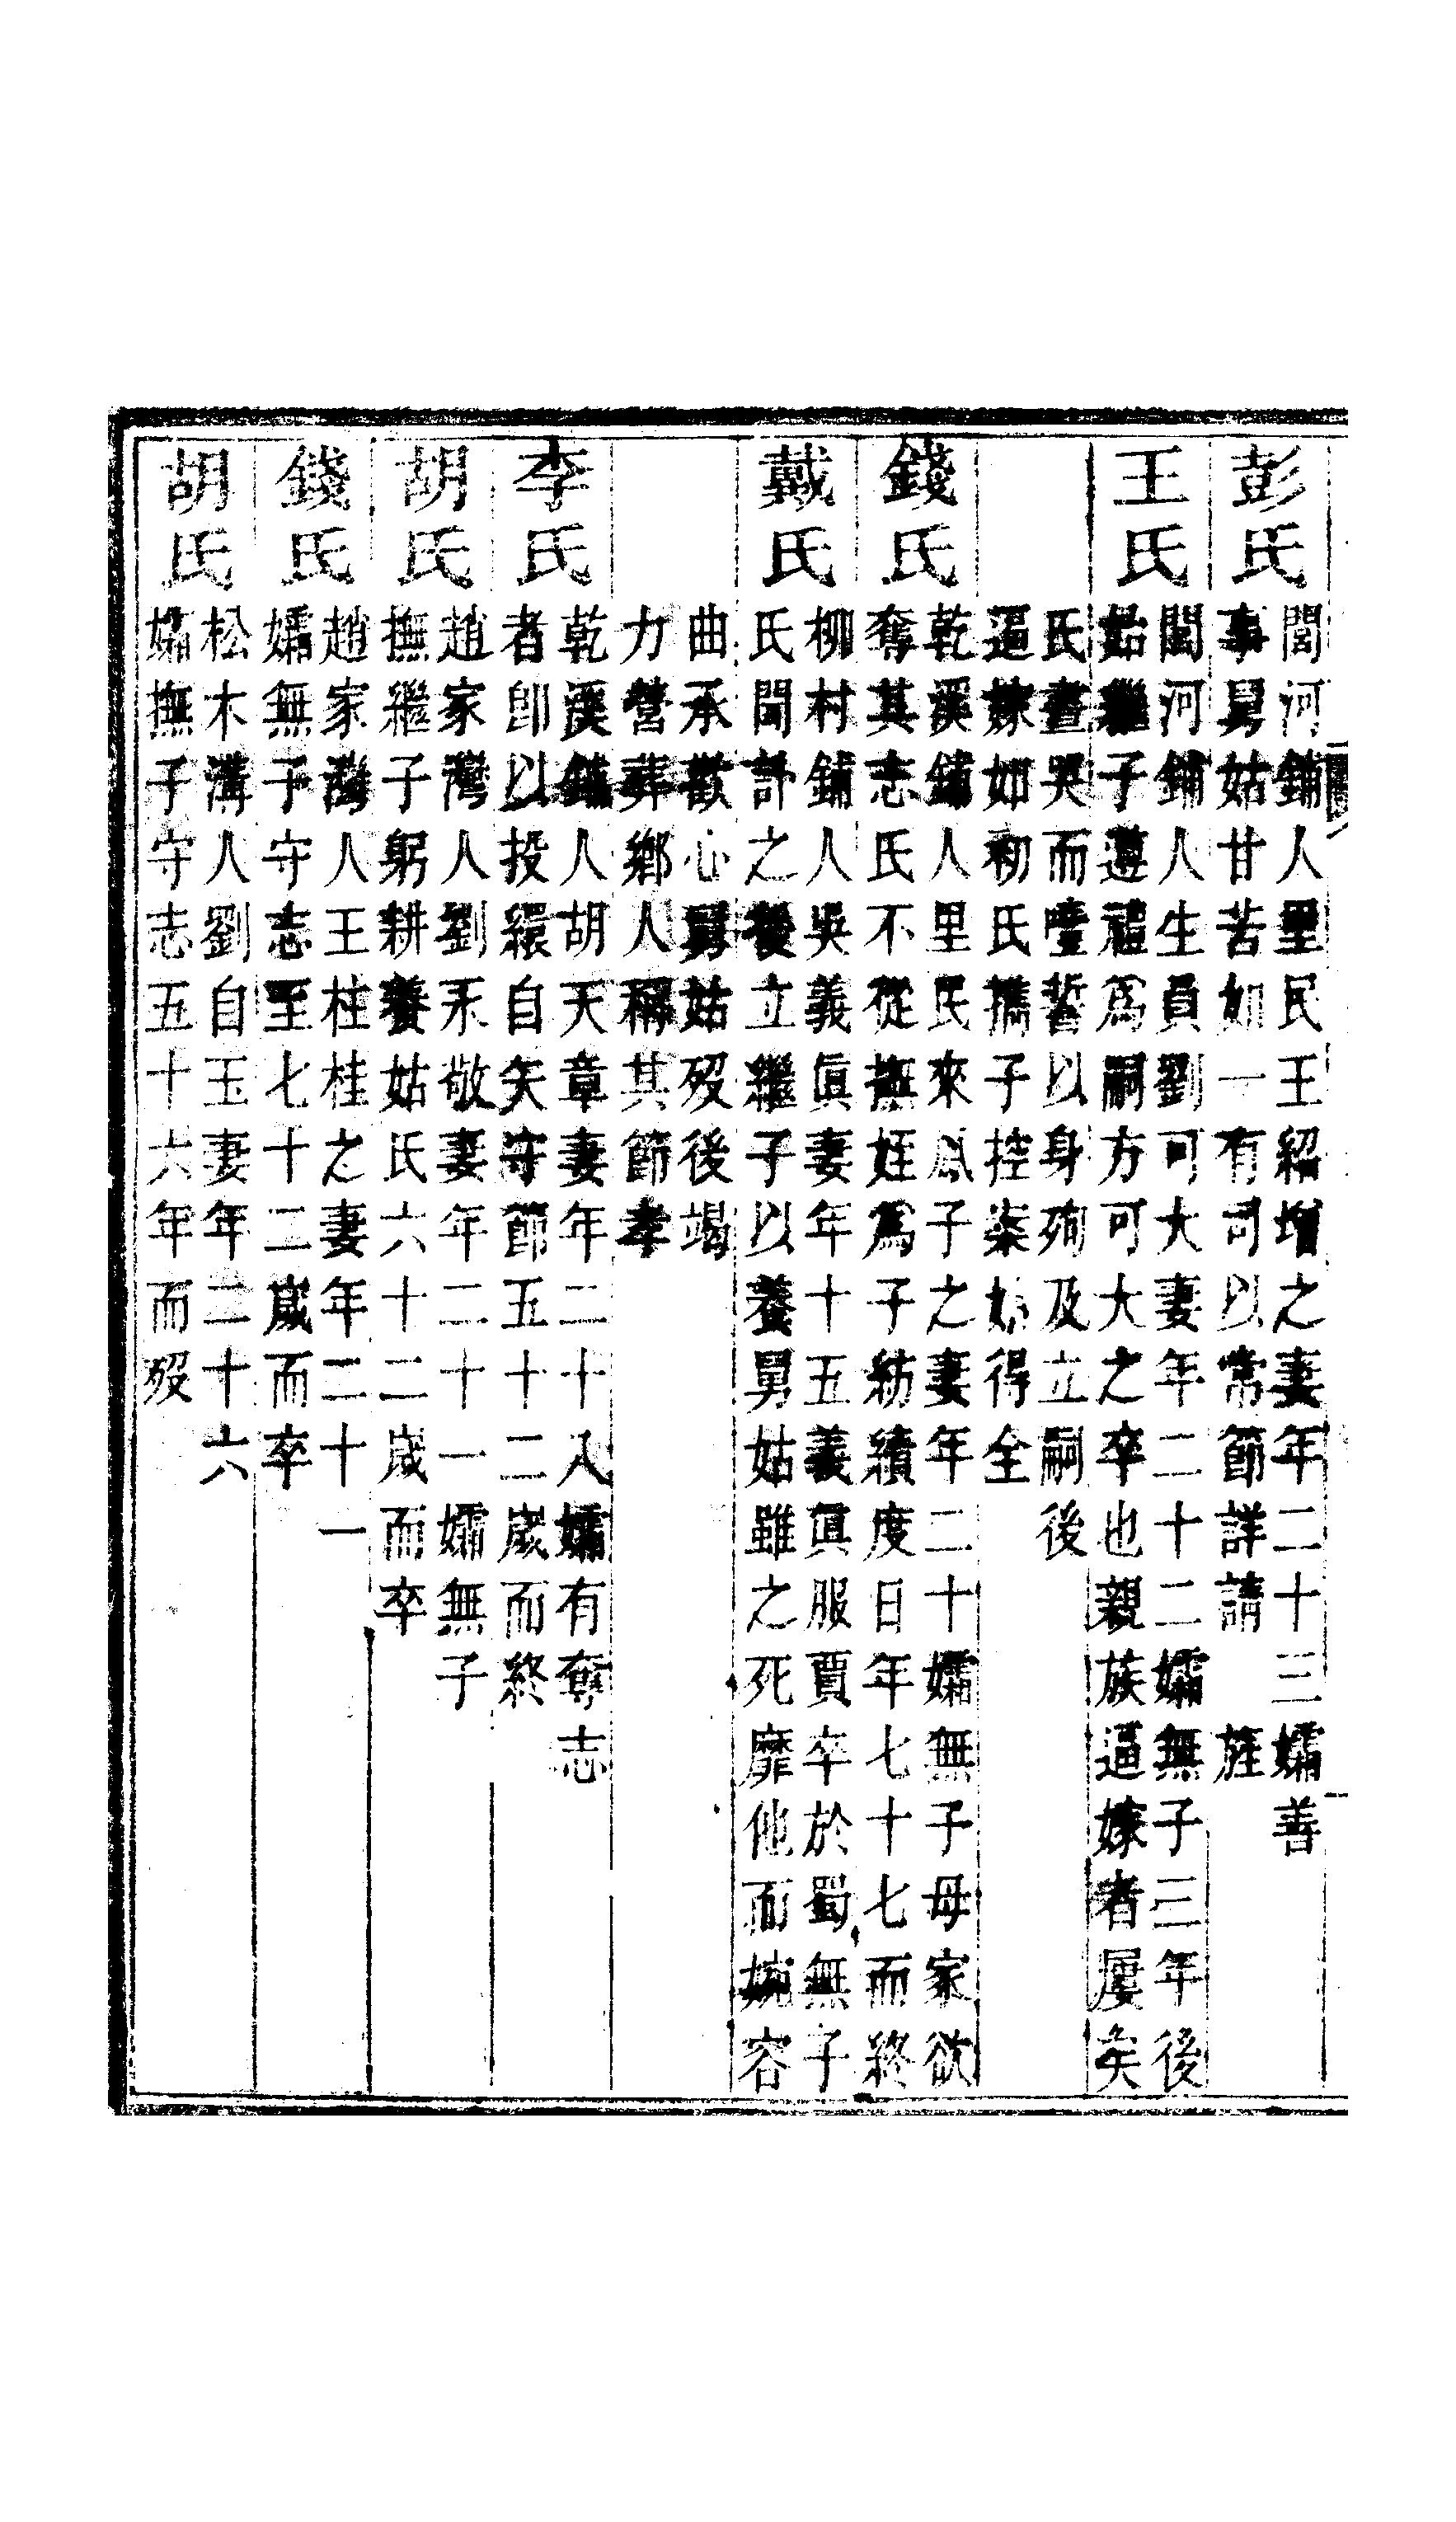 彭氏
閭河鋪人里民王紹增之妻年二十三孀善
事舅姑甘苦如一有司以常節詳請 旌
王氏
閭河鋪人生員劉可大妻年二十二孀無子三年後
姑繼子遵禮爲嗣方可大之卒也親族逼嫁者屢矣
氏晝哭而噎誓以身殉及立嗣後
逼嫁如初氏攜子控案始得全
錢氏
乾溪鋪人里民來鳳子之妻年二十孀無子母家欲
奪其志氏不從撫姪爲子紡績度日年七十七而終
戴氏
柳村鋪人吳義眞妻年十五義眞服賈卒於蜀無子
氏聞訃之後立繼子以養舅姑雖之死靡他而婉容
曲承歡心舅姑歿後竭
力營葬鄉人稱其節孝
李氏
乾溪鋪人胡天章妻年二十八孀有奪志
者卽以投繯自矢守節五十二歲而終
胡氏
趙家灣人劉永敬妻年二十一孀無子
撫繼子躬耕養姑氏六十二歲而卒
錢氏
趙家灣人王柱桂之妻年二十一
孀無子守志至七十二歲而卒
胡氏
松木溝人劉自玉妻年二十六
孀撫子守志五十六年而歿